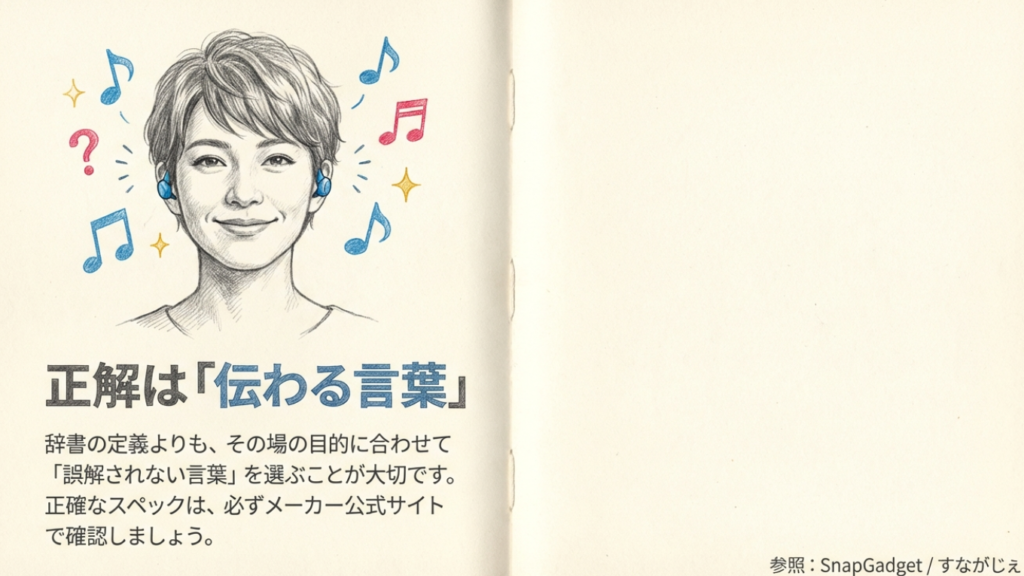 正解は「伝わる言葉」
辞書の定義よりも、その場の目的に合わせて
「誤解されない言葉」を選ぶことが大切です。
正確なスペックは、必ずメーカー公式サイト
で確認しましょう。
参照：SnapGadget / すながじぇ